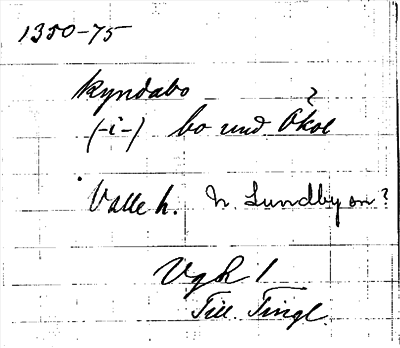 1350-75
Kyndabo
?
(-i-) bo und Økol
Valle h. N. Lundbyon?
VgR 1
Till. Tingl.